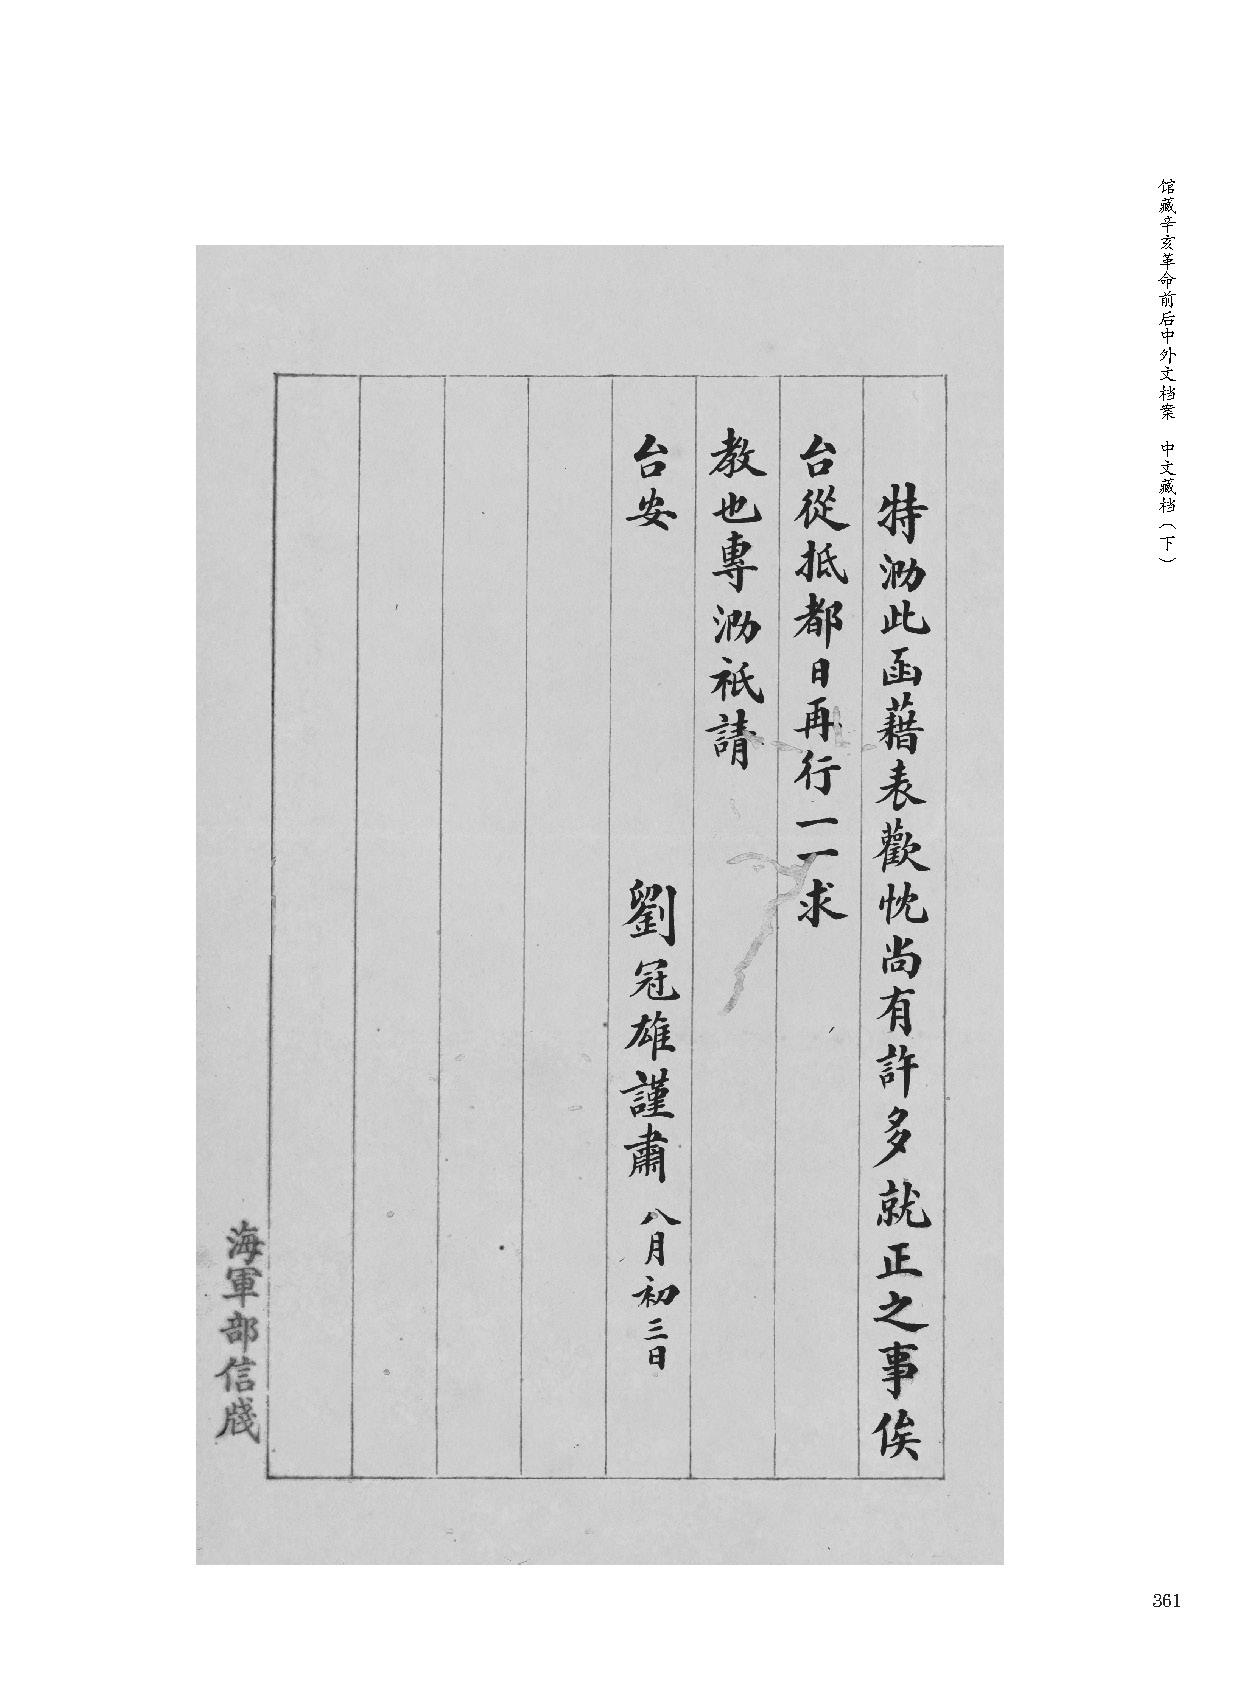 馆藏辛亥革命前后中外文档案 中文藏档（下）
特泐此函藉表歡忱尚有許多就正之事俟
台從抵都日再行一一求
教也專泐祇請
台安
劉冠雄謹肅 八月初三日
海軍部信牋
361